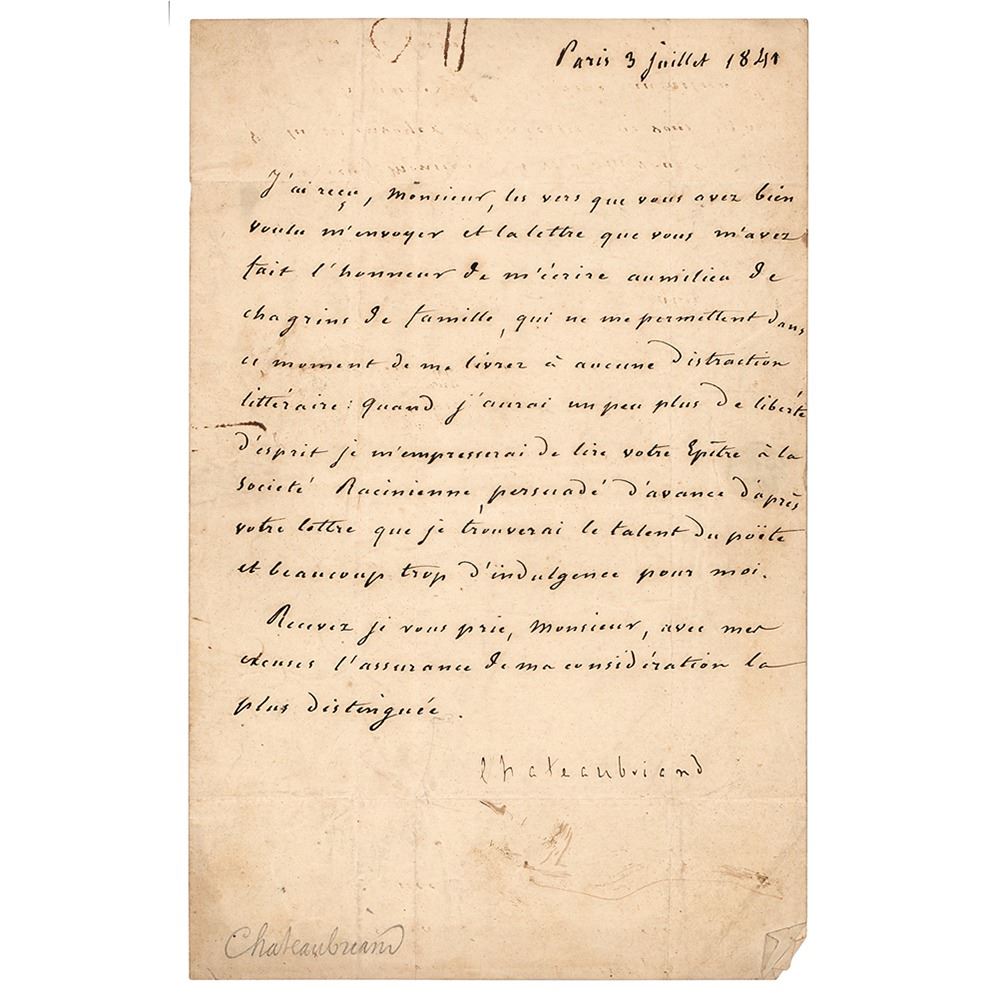 Paris 3 Juillet 1841
J'ai reçu, Monsieur, les vers que vous avez bien
voulu m'envoyer et la lettre que vous m'avez
fait l'honneur de m'écrire au milieu de
chagrins de famille, qui ne me permettent dans
ce moment de me livrer à aucune distraction
littéraire: quand j'aurai un peu plus de liberté
d'esprit je m'empresserai de lire votre Epître à la
Societé Racinienne, persuadé d'avance d'après
votre lettre que je trouverai le talent du poëte
et beaucoup trop d'indulgence pour moi.
Recevez je vous prie, Monsieur, avec mes
excuses l'assurance de ma considération la
plus distinguée.
Chateaubriand
Chateaubriand